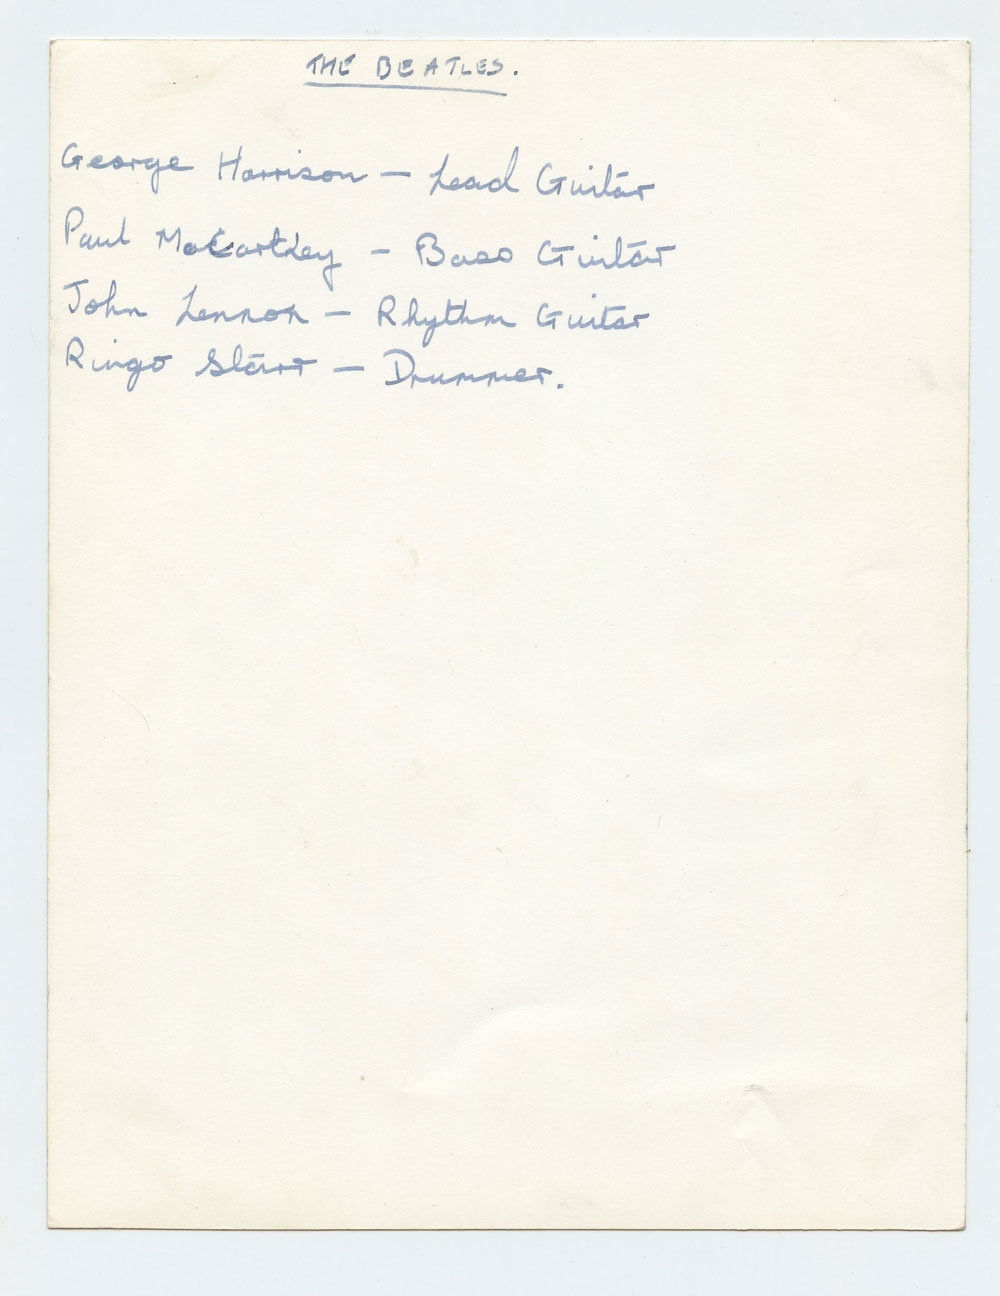 THE BEATLES.
George Harrison – Lead Guitar
Paul McCartney – Bass Guitar
John Lennon – Rhythm Guitar
Ringo Starr – Drummer.